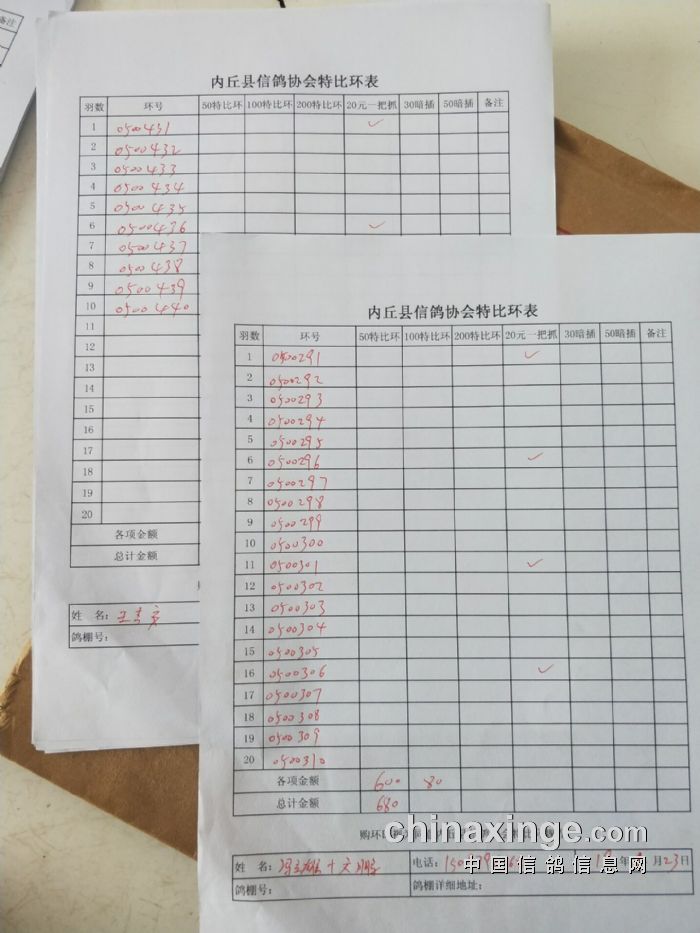 备注
内丘县信鸽协会特比环表
羽数 环号 50特比环 100特比环 200特比环 20元一把抓 30暗插 50暗插 备注
1 0500431 ✓
2 0500432
3 0500433
4 0500434
5 0500435
6 0500436 ✓
7 0500437
8 0500438
9 0500439
10 0500440
11
12
13
14
15
16
17
18
19
20
各项金额
总计金额
购
姓 名:
鸽棚号:
内丘县信鸽协会特比环表
羽数 环号 50特比环 100特比环 200特比环 20元一把抓 30暗插 50暗插 备注
1 0500291 ✓
2 0500292
3 0500293
4 0500294
5 0500295
6 0500296 ✓
7 0500297
8 0500298
9 0500299
10 0500300
11 0500301 ✓
12 0500302
13 0500303
14 0500304
15 0500305
16 0500306 ✓
17 0500307
18 0500308
19 0500309
20 0500310
各项金额 600 80
总计金额 680
购环
chinaxinge.com
姓 名: 电话: 年 月 23日
中国信鸽信息网
鸽棚号: 鸽棚详细地址: